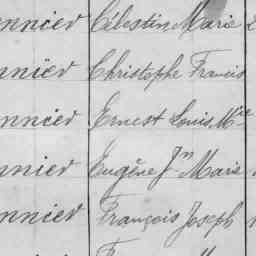 nnier Célestin Marie
nnier Christophe Francis
nnier Ernest Louis Mie
nnier Eugêne Jn Marie
nnier François Joseph